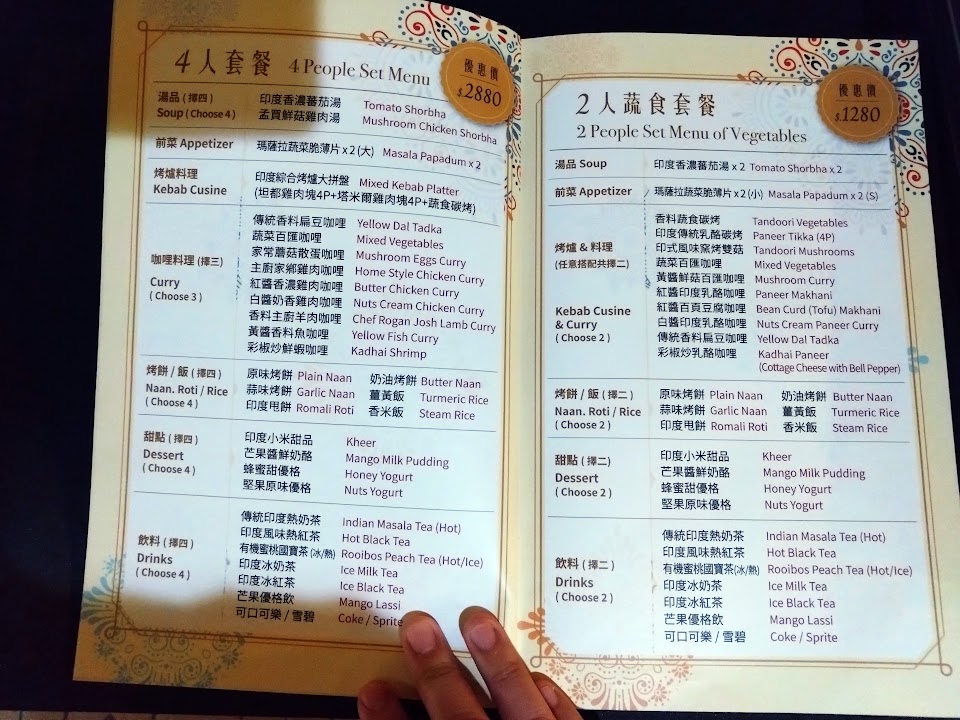 4人套餐 4 People Set Menu
優惠價
$2880
湯品 (擇四) 印度香濃蕃茄湯 Tomato Shorbha
Soup ( Choose 4 ) 孟買鮮菇雞肉湯 Mushroom Chicken Shorbha
前菜 Appetizer 瑪薩拉蔬菜脆薄片 x 2 (大) Masala Papadum x 2
烤爐料理 印度綜合烤爐大拼盤 Mixed Kebab Platter
Kebab Cusine (坦都雞肉塊4P+塔米爾雞肉塊4P+蔬食碳烤)
咖哩料理 (擇三)
Curry
( Choose 3 )
傳統香料扁豆咖哩 Yellow Dal Tadka
蔬菜百匯咖哩 Mixed Vegetables
家常蘑菇散蛋咖哩 Mushroom Eggs Curry
主廚家鄉雞肉咖哩 Home Style Chicken Curry
紅醬香濃雞肉咖哩 Butter Chicken Curry
白醬奶香雞肉咖哩 Nuts Cream Chicken Curry
香料主廚羊肉咖哩 Chef Rogan Josh Lamb Curry
黃醬香料魚咖哩 Yellow Fish Curry
彩椒炒鮮蝦咖哩 Kadhai Shrimp
烤餅 / 飯 (擇四) 原味烤餅 Plain Naan 奶油烤餅 Butter Naan
Naan. Roti / Rice 蒜味烤餅 Garlic Naan 薑黃飯 Turmeric Rice
( Choose 4 ) 印度甩餅 Romali Roti 香米飯 Steam Rice
甜點 (擇四)
Dessert
( Choose 4 )
印度小米甜品 Kheer
芒果醬鮮奶酪 Mango Milk Pudding
蜂蜜甜優格 Honey Yogurt
堅果原味優格 Nuts Yogurt
飲料 (擇四)
Drinks
( Choose 4 )
傳統印度熱奶茶 Indian Masala Tea (Hot)
印度風味熱紅茶 Hot Black Tea
有機蜜桃國寶茶 (冰/熱) Rooibos Peach Tea (Hot/Ice)
印度冰奶茶 Ice Milk Tea
印度冰紅茶 Ice Black Tea
芒果優格飲 Mango Lassi
可口可樂 / 雪碧 Coke / Sprite
2人蔬食套餐
2 People Set Menu of Vegetables
優惠價
$1280
湯品 Soup 印度香濃蕃茄湯 x 2 Tomato Shorbha x 2
前菜 Appetizer 瑪薩拉蔬菜脆薄片 x 2 (小) Masala Papadum x 2 (S)
烤爐 & 料理
(任意搭配共擇二)
Kebab Cusine
& Curry
( Choose 2 )
香料蔬食碳烤 Tandoori Vegetables
印度傳統乳酪碳烤 Paneer Tikka (4P)
印式風味窯烤雙菇 Tandoori Mushrooms
蔬菜百匯咖哩 Mixed Vegetables
黃醬鮮菇百匯咖哩 Mushroom Curry
紅醬印度乳酪咖哩 Paneer Makhani
紅醬百頁豆腐咖哩 Bean Curd (Tofu) Makhani
白醬印度乳酪咖哩 Nuts Cream Paneer Curry
傳統香料扁豆咖哩 Yellow Dal Tadka
彩椒炒乳酪咖哩 Kadhai Paneer
(Cottage Cheese with Bell Pepper)
烤餅 / 飯 (擇二) 原味烤餅 Plain Naan 奶油烤餅 Butter Naan
Naan. Roti / Rice 蒜味烤餅 Garlic Naan 薑黃飯 Turmeric Rice
( Choose 2 ) 印度甩餅 Romali Roti 香米飯 Steam Rice
甜點 (擇二)
Dessert
( Choose 2 )
印度小米甜品 Kheer
芒果醬鮮奶酪 Mango Milk Pudding
蜂蜜甜優格 Honey Yogurt
堅果原味優格 Nuts Yogurt
飲料 (擇二)
Drinks
( Choose 2 )
傳統印度熱奶茶 Indian Masala Tea (Hot)
印度風味熱紅茶 Hot Black Tea
有機蜜桃國寶茶 (冰/熱) Rooibos Peach Tea (Hot/Ice)
印度冰奶茶 Ice Milk Tea
印度冰紅茶 Ice Black Tea
芒果優格飲 Mango Lassi
可口可樂 / 雪碧 Coke / Sprite